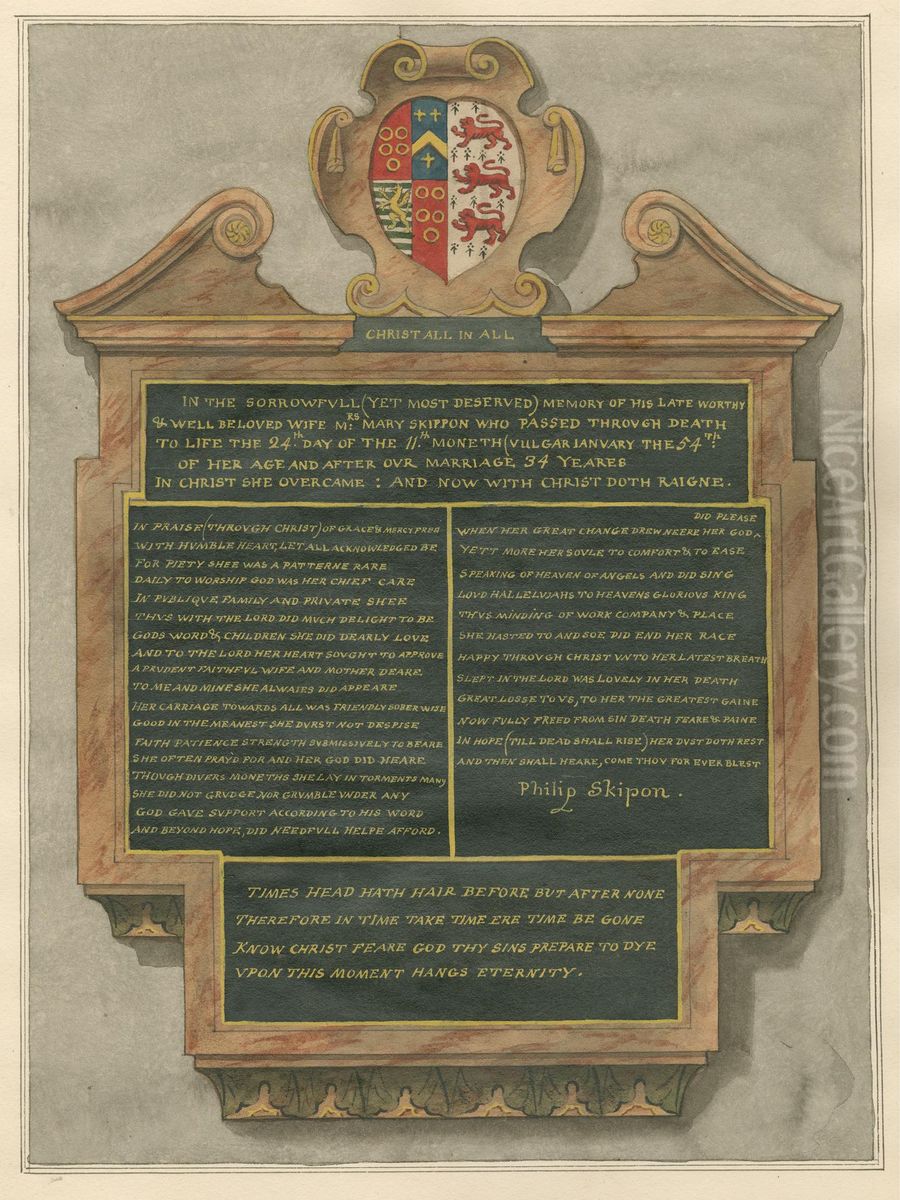 CHRIST ALL IN ALL
IN THE SORROWFVLL (YET MOST DESERVED) MEMORY OF HIS LATE WORTHY
& WELL BELOVED WIFE MRS. MARY SKIPPON WHO PASSED THROVGH DEATH
TO LIFE THE 24th. DAY OF THE 11th. MONETH (VULGAR IANVARY THE 54TH.
OF HER AGE AND AFTER OVR MARRIAGE 34 YEARES
IN CHRIST SHE OVERCAME : AND NOW WITH CHRIST DOTH RAIGNE.
IN PRAISE (THROVGH CHRIST) OF GRACE & MERCY FREE
WITH HVMBLE HEART, LET ALL ACKNOWLEDGED BE
FOR PIETY SHEE WAS A PATTERNE RARE
DAILY TO WORSHIP GOD WAS HER CHIEF CARE
IN PVBLIQVE FAMILY AND PRIVATE SHEE
THVS WITH THE LORD DID MVCH DELIGHT TO BE
GODS WORD & CHILDREN SHE DID DEARLY LOVE
AND TO THE LORD HER HEART SOVGHT TO APPROVE
A PRVDENT FAITHFVL WIFE AND MOTHER DEARE
TO ME AND MINE SHE ALWAIES DID APPEARE
HER CARRIAGE TOWARDS ALL WAS FRIENDLY SOBER WISE
GOOD IN THE MEANEST SHE DVRST NOT DESPISE
FAITH PATIENCE STRENGTH SVBMISSIVELY TO BEARE
SHE OFTEN PRAYD FOR AND HER GOD DID HEARE
THOVGH DIVERS MONETHS SHE LAY IN TORMENTS MANY
SHE DID NOT GRVDGE NOR GRVMBLE VNDER ANY
GOD GAVE SVPPORT ACCORDING TO HIS WORD
AND BEYOND HOPE, DID NEEDFVLL HELPE AFFORD.
DID PLEASE
WHEN HER GREAT CHANGE DREW NEERE HER GOD^
YETT MORE HER SOVLE TO COMFORT & TO EASE
SPEAKING OF HEAVEN OF ANGELS AND DID SING
LOVD HALLELVJAHS TO HEAVENS GLORIOVS KING
THVS MINDING OF WORK COMPANY & PLACE
SHE HASTED TO AND SOE DID END HER RACE
HAPPY THROVGH CHRIST VNTO HER LATEST BREATH
SLEPT IN THE LORD WAS LOVELY IN HER DEATH
GREAT LOSSE TO VS, TO HER THE GREATEST GAINE
NOW FVLLY FREED FROM SIN DEATH FEARE & PAINE
IN HOPE (TILL DEAD SHALL RISE) HER DVST DOTH REST
AND THEN SHALL HEARE, COME THOV FOR EVER BLEST
Philip Skipon .
TIMES HEAD HATH HAIR BEFORE BUT AFTER NONE
THEREFORE IN TIME TAKE TIME ERE TIME BE GONE
KNOW CHRIST FEARE GOD THY SINS PREPARE TO DYE
VPON THIS MOMENT HANGS ETERNITY.
NiceArtGallery.com